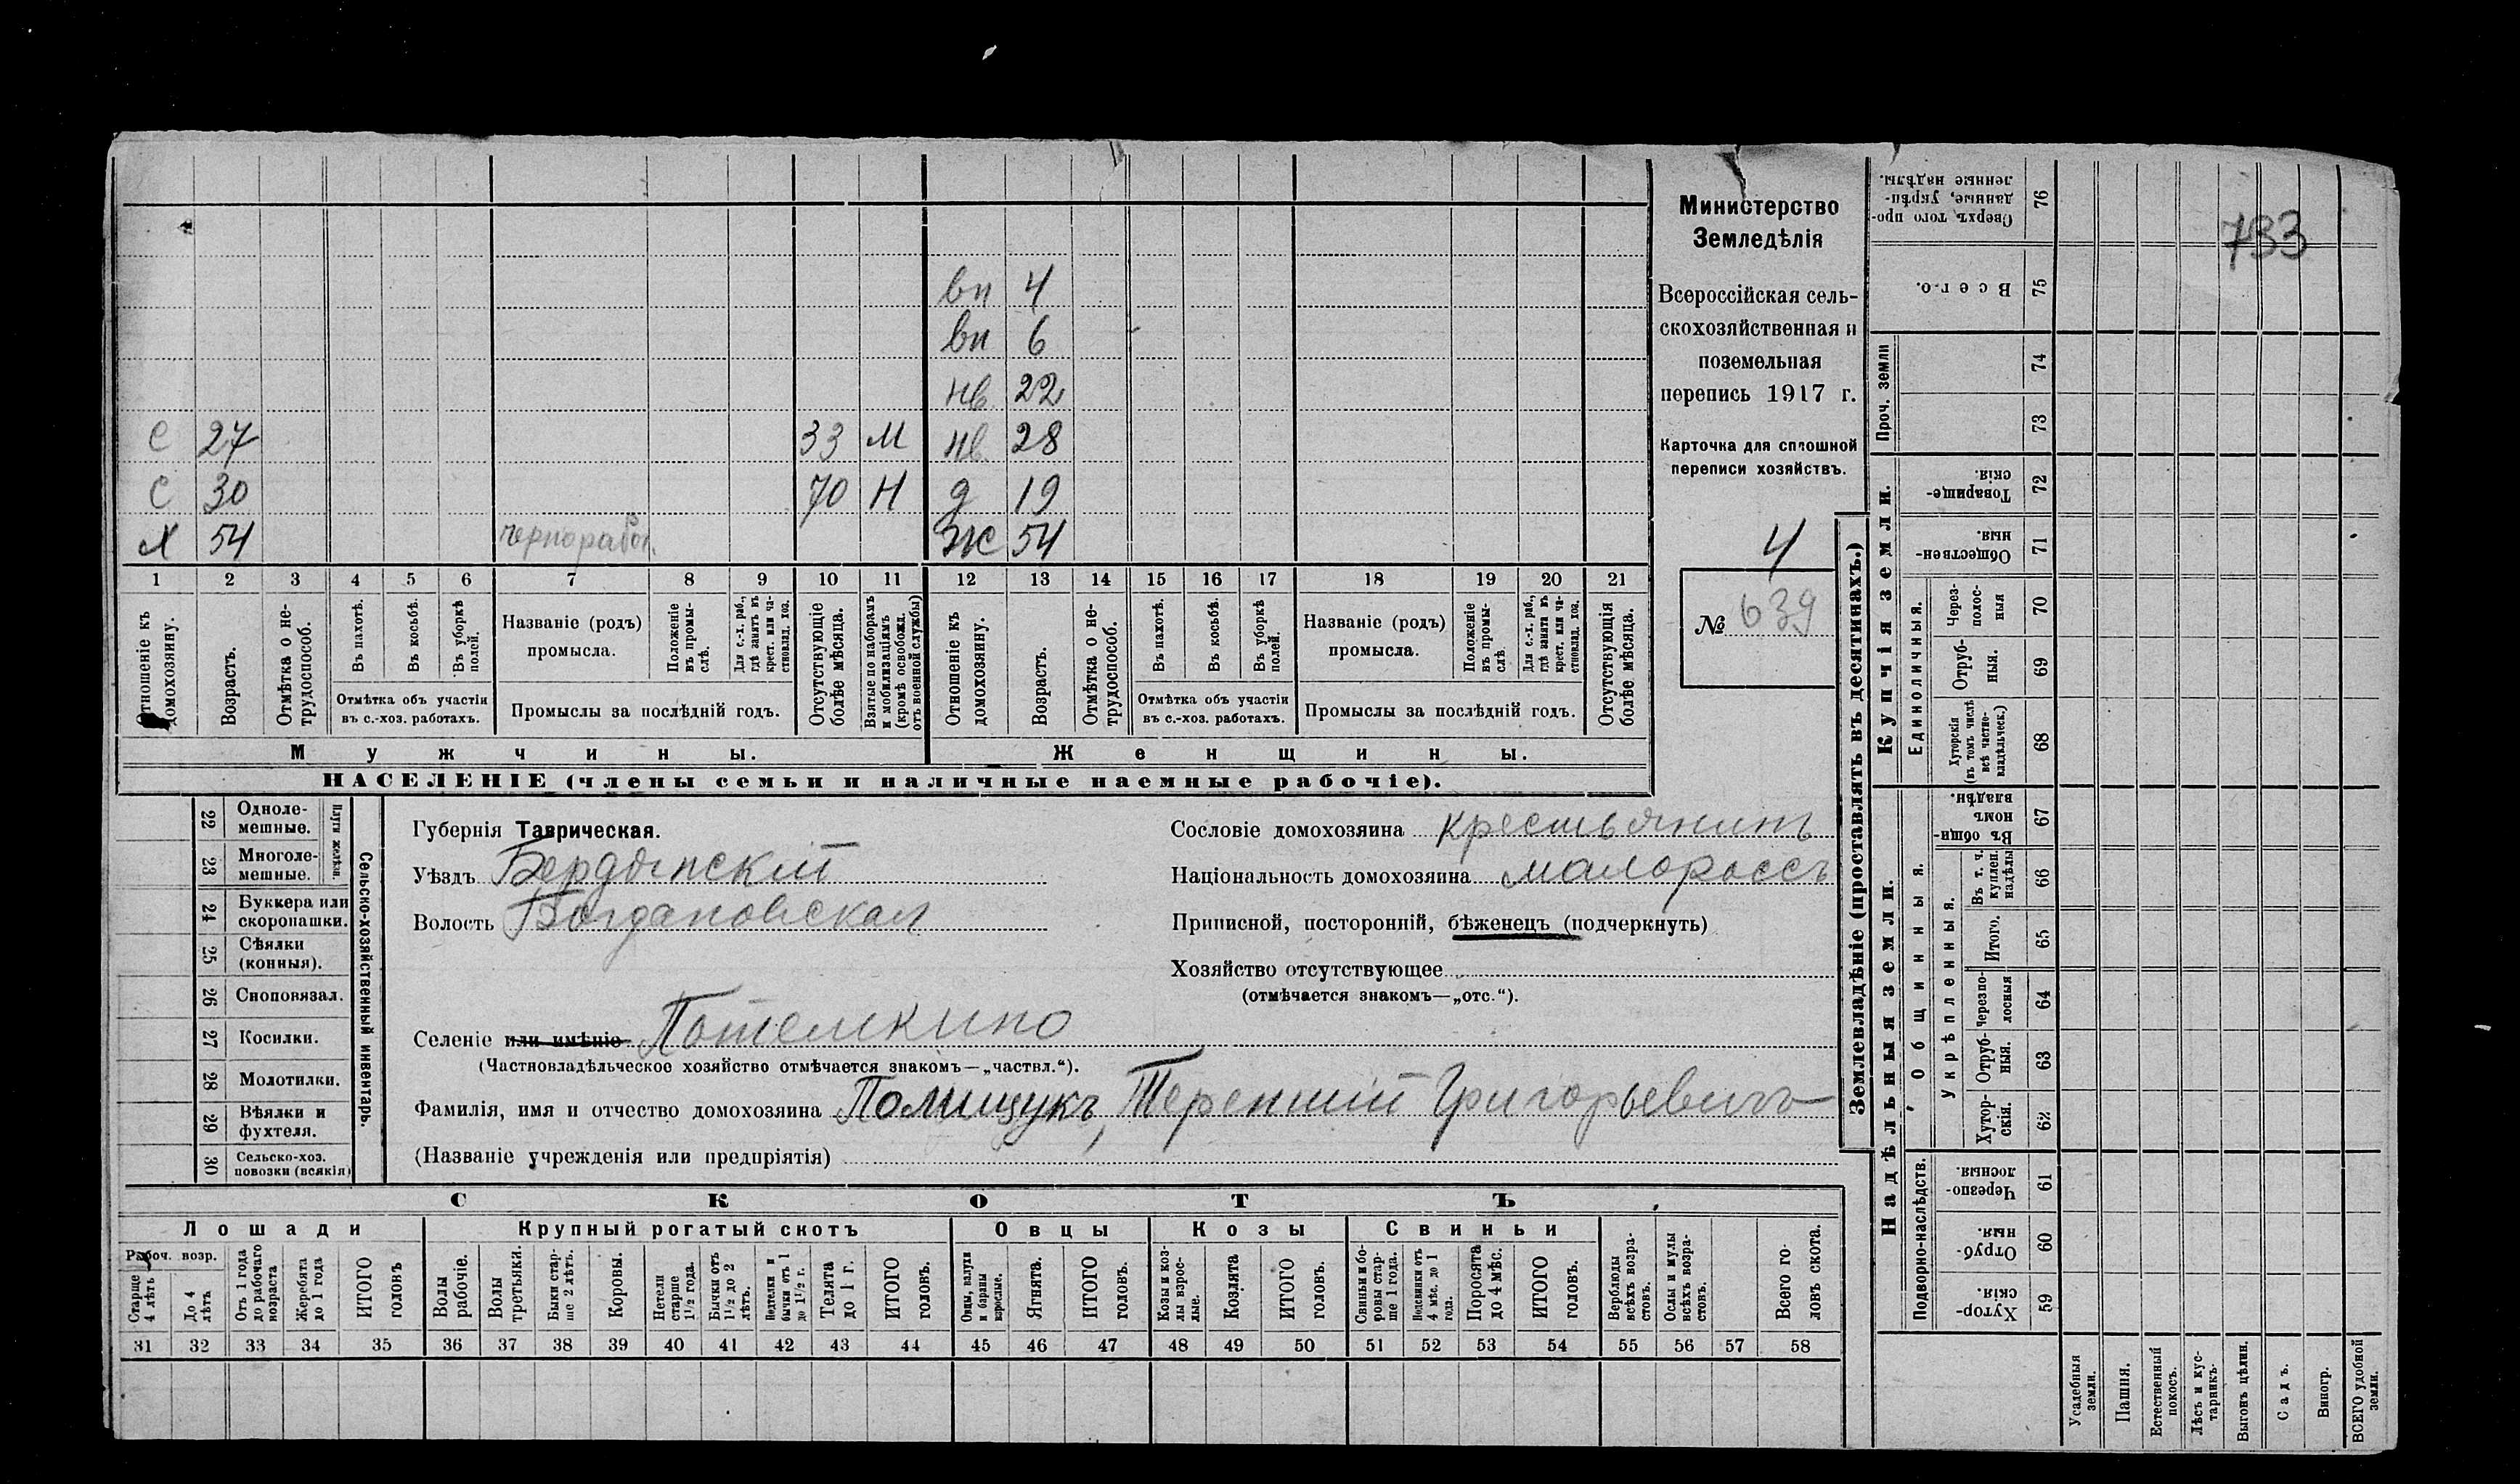 вп 4
вп 6
нв 22
С 27 33 М нв 28
С 30 70 Н д 19
Х 54 чернорабоч. Ж 54
1 2 3 4 5 6 7 8 9 10 11 12 13 14 15 16 17 18 19 20 21
Отношеніе къ домохозяину.
Возрастъ.
Отмѣтка о не-
трудоспособ.
Въ пахотѣ.
Въ косьбѣ.
Въ уборкѣ
полей.
Отмѣтка объ участіи
въ с.-хоз. работахъ.
Названіе (родъ)
промысла.
Положеніе
въ промы-
слѣ.
Для с.-х. раб.,
гдѣ занятъ въ
крест. или ча-
стновлад. хоз.
Промыслы за послѣдній годъ.
Отсутствующіе
болѣе мѣсяца.
Взятые по наборамъ
и мобилизаціямъ
(кромѣ освобожд.
отъ военной службы)
Отношеніе къ
домохозяину.
Возрастъ.
Отмѣтка о не-
трудоспособ.
Въ пахотѣ.
Въ косьбѣ.
Въ уборкѣ
полей.
Отмѣтка объ участіи
въ с.-хоз. работахъ.
Названіе (родъ)
промысла.
Положеніе
въ промы-
слѣ.
Для с.-х. раб.,
гдѣ занята въ
крест. или ча-
стновлад. хоз.
Промыслы за послѣдній годъ.
Отсутствующія
болѣе мѣсяца.
Мужчины.
Женщины.
НАСЕЛЕНІЕ (члены семьи и наличные наемные рабочіе).
Министерство
Земледѣлія
Всероссійская сель-
скохозяйственная и
поземельная
перепись 1917 г.
Карточка для сплошной
переписи хозяйствъ.
4
№ 639
22 Одноле-
мешные.
23 Многоле-
мешные.
Плуги желѣзн.
24 Буккера или
скоропашки.
25 Сѣялки
(конныя).
26 Сноповязал.
27 Косилки.
28 Молотилки.
29 Вѣялки и
фухтеля.
30 Сельско-хоз.
повозки (всякія)
Сельско-хозяйственный инвентарь.
Губернія Таврическая.
Уѣздъ Бердянскій
Волость Богдановская
Сословіе домохозяина крестьянинъ
Національность домохозяина малороссъ
Приписной, посторонній, бѣженецъ (подчеркнуть)
Хозяйство отсутствующее
(отмѣчается знакомъ—„отс.“).
Селеніе или имѣніе Потемкино
(Частновладѣльческое хозяйство отмѣчается знакомъ—„частвл.“).
Фамилія, имя и отчество домохозяина Полищукъ, Терентій Григорьевичъ
(Названіе учрежденія или предпріятія)
СКОТЪ
Лошади
Крупный рогатый скотъ
Овцы
Козы
Свиньи
Рабоч. возр.
Старше
4 лѣтъ
До 4
лѣтъ
Отъ 1 года
до рабочаго
возраста
Жеребята
до 1 года
ИТОГО
головъ
Волы
рабочіе.
Волы
третьяки.
Быки стар-
ше 2 лѣтъ.
Коровы.
Нетели
старше
1½ года.
Бычки отъ
1½ до 2
лѣтъ.
Подтелки и
бычки отъ 1
до 1½ г.
Телята
до 1 г.
ИТОГО
головъ.
Овцы, валухи
и бараны
взрослые.
Ягнята.
ИТОГО
головъ.
Козы и коз-
лы взрос-
лые.
Козлята
ИТОГО
головъ.
Свиньи и бо-
ровы стар-
ше 1 года.
Подсвинки отъ
4 мѣс. до 1
года.
Поросята
до 4 мѣс.
ИТОГО
головъ.
Верблюды
всѣхъ возра-
стовъ.
Ослы и мулы
всѣхъ возра-
стовъ.
Всего го-
ловъ скота.
31 32 33 34 35 36 37 38 39 40 41 42 43 44 45 46 47 48 49 50 51 52 53 54 55 56 57 58
Землевладѣніе (проставлять въ десятинахъ.)
733
Сверхъ того про-
данные, укрѣп-
ленные надѣлы.
76
Всего.
75
Проч. земли
74
73
Купчія земли.
Товарище-
скія.
72
Обществен-
ныя.
71
Единоличныя.
Через-
полос-
ныя
70
Отруб-
ныя.
69
Хуторскія
(въ томъ числѣ
всѣ частно-
владѣльческ.)
68
Надѣльныя земли.
Общинныя.
Въ общин-
номъ
владѣн.
67
Укрѣпленныя.
Въ т. ч.
куплен.
надѣлы
66
Итого.
65
Черезпо-
лосныя
64
Отруб-
ныя.
63
Хутор-
скія.
62
Подворно-наслѣдств.
Черезпо-
лосныя.
61
Отруб-
ныя.
60
Хутор-
скія.
59
Усадебныя
земли.
Пашня.
Естественный
покосъ.
Лѣсъ и кус-
тарникъ.
Выгонъ цѣлин.
Садъ.
Виногр.
ВСЕГО удобной
земли.